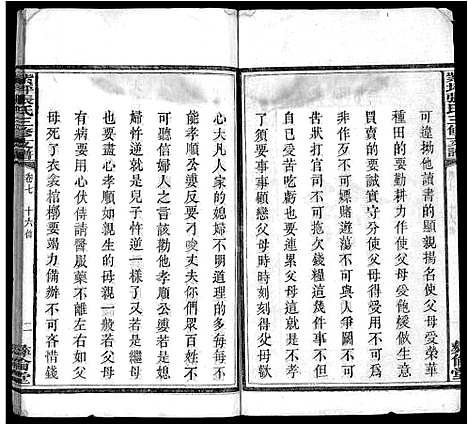 可違拗他讀書的顯親揚名使父母受榮華
種田的要勤耕力作使父母受飽緩做生意
買賣的要誠實守分使父母得受用不可好
酒不可不可嫖賭遊蕩不可與人爭鬥不可
告狀打官司不可拖欠錢糧這幾件事不但
自己身家不好就是連累父母這就是不孝
了事事要顧戀父母時時刻刻得父母歡
心大凡人家的媳婦不明道理的多每每不
能孝順公婆反要刁唆丈夫你們眾百姓不
可聽信婦言該勸他孝順公婆若是媳
婦忤逆就是兒子忤逆一樣了又若是繼母
也要盡心孝順如親生的母親一般若父母
有病要用心伏侍請醫服藥不離左右如父
母死了衣衾棺槨要竭力備辦不可吝惜錢
張氏三修支譜
卷七
十六
二
彝倫堂